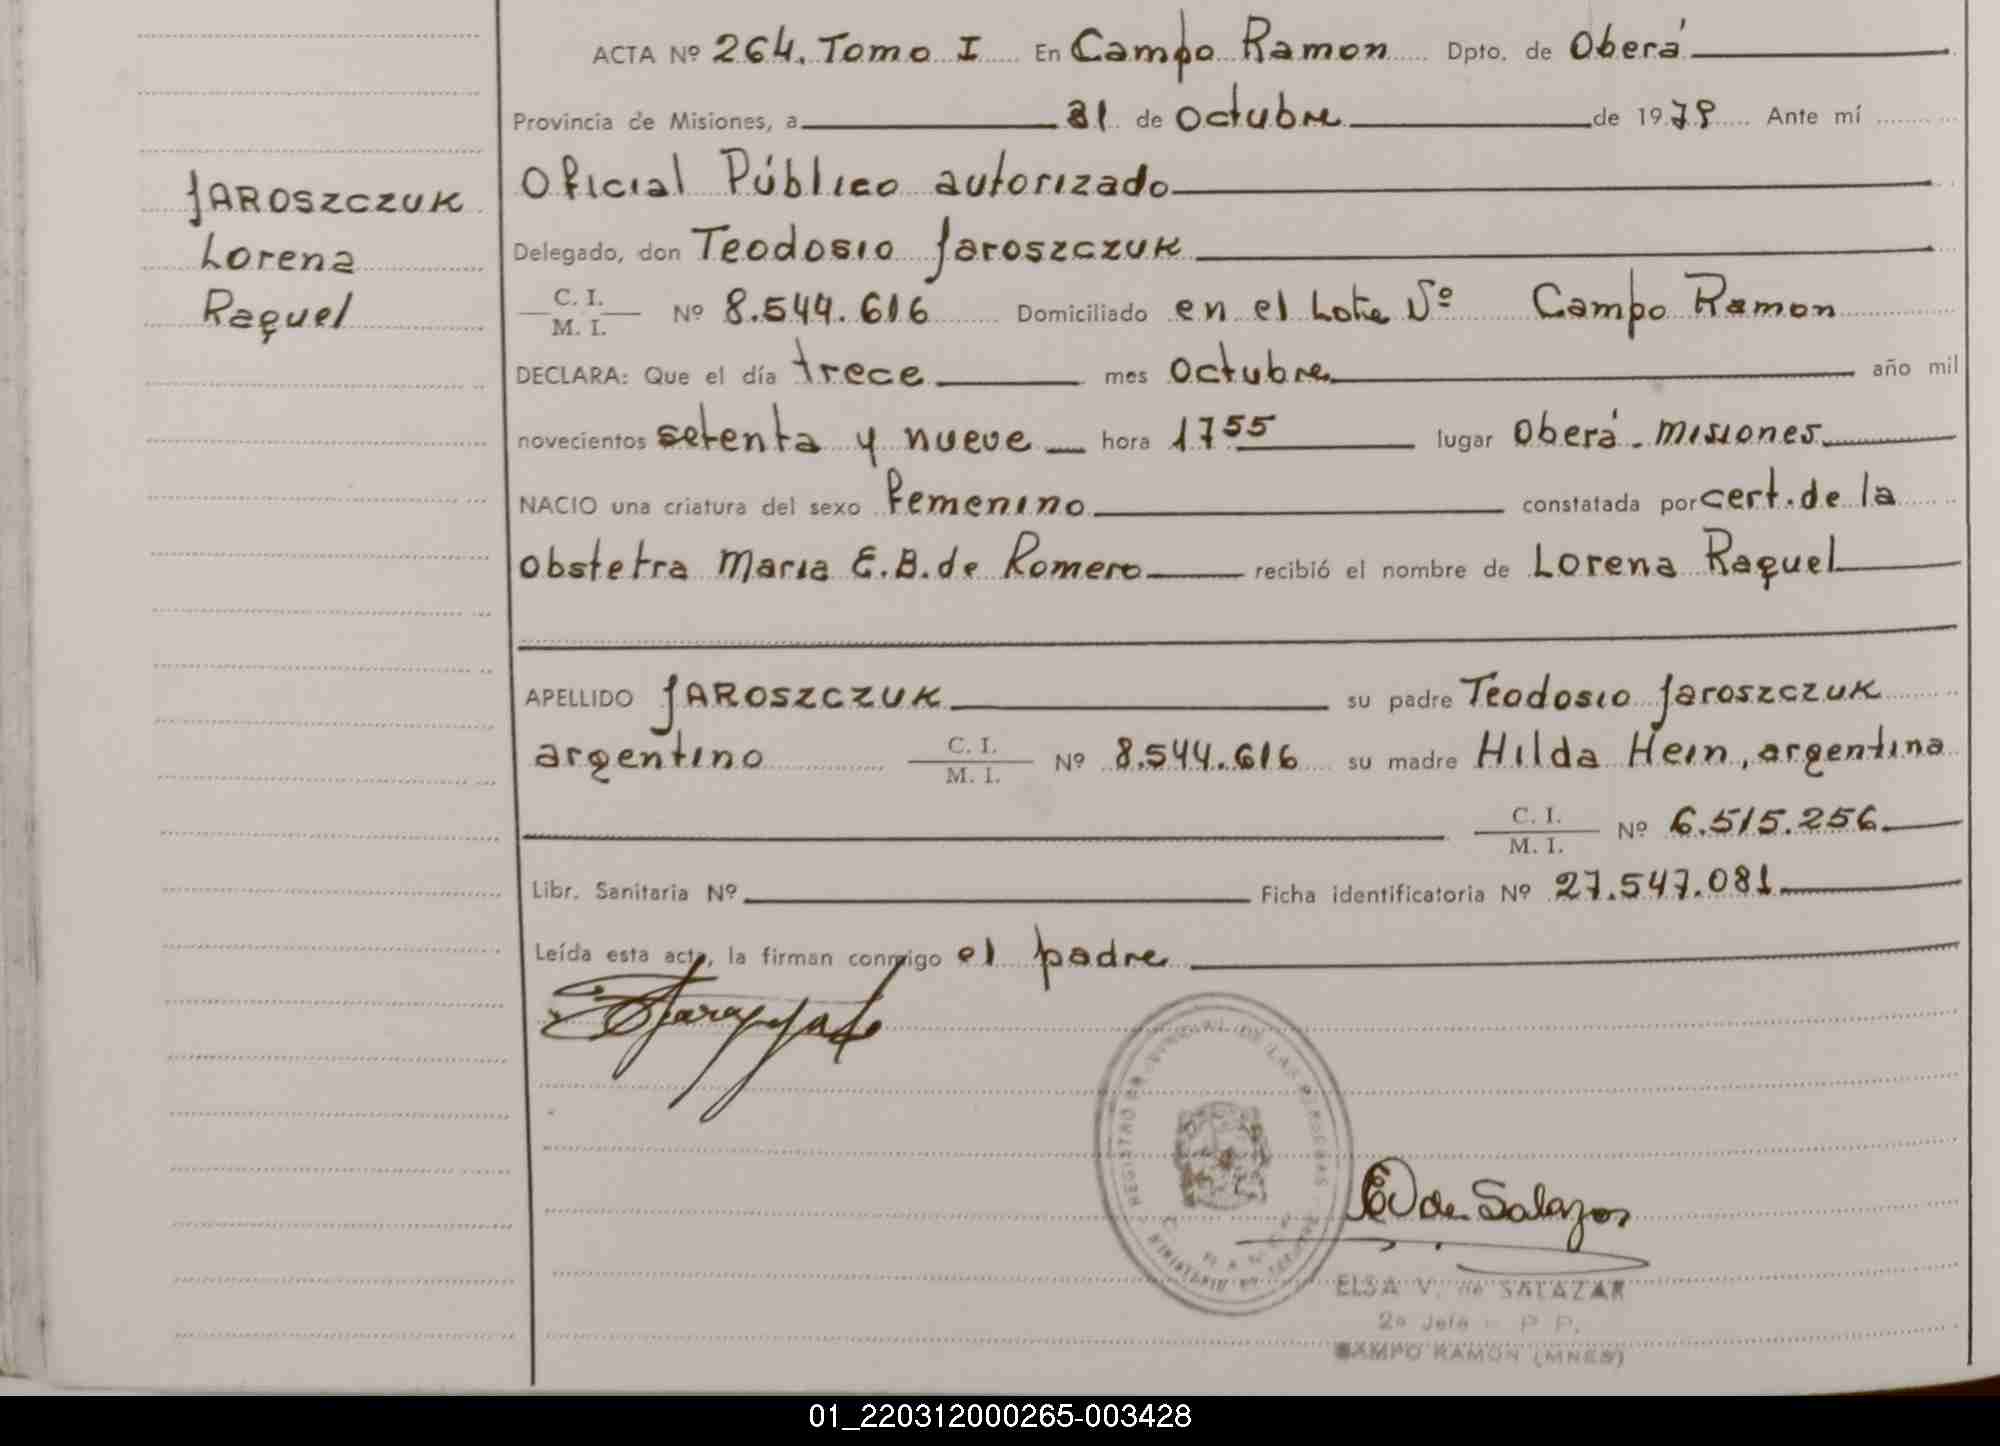 ACTA Nº 264. Tomo I En Campo Ramon Dpto. de Oberá
Provincia de Misiones, a 31 de Octubre de 1979 Ante mí
Oficial Público autorizado
JAROSZCZUK
Lorena
Raquel
Delegado, don Teodosio Jaroszczuk
C. I.
M. I. Nº 8.544.616 Domiciliado en el Lote Campo Ramon
DECLARA: Que el día trece mes Octubre año mil
novecientos setenta y nueve hora 17 55 lugar Oberá - Misiones
NACIO una criatura del sexo Femenino constatada por cert. de la
Obstetra Maria E. B. de Romero recibió el nombre de Lorena Raquel
APELLIDO JAROSZCZUK su padre Teodosio Jaroszczuk
argentino C. I.
M. I. Nº 8.544.616 su madre Hilda Hein, argentina
C. I.
M. I. Nº 6.515.256
Libr. Sanitaria Nº Ficha identificatoria Nº 27.547.081
Leída esta acta, la firman conmigo el padre
REGISTRO PROVINCIAL DE LAS PERSONAS
MINISTERIO DE
EV de Salazar
ELSA V. de SALAZAR
2º Jefe P P.
CAMPO RAMON (MNES)
01_220312000265-003428